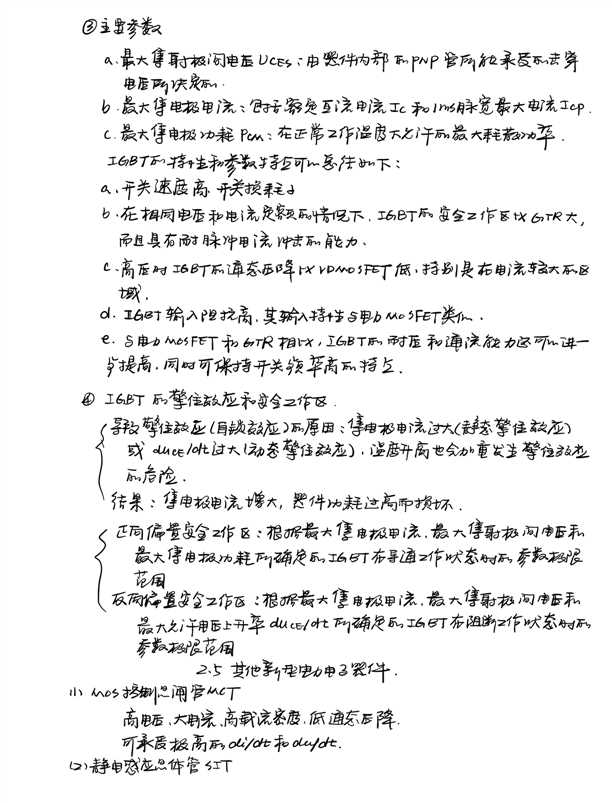 ③主要参数
a.最大集射极间电压UCES:由器件内部的PNP管所能承受的击穿
电压所决定的.
b.最大集电极电流:包括额定直流电流Ic和1ms脉宽最大电流Icp.
c.最大集电极功耗Pcm:在正常工作温度下允许的最大耗散功率.
IGBT的特性和参数特点可以总结如下:
a.开关速度高,开关损耗小
b.在相同电压和电流定额的情况下,IGBT的安全工作区比GTR大,
而且具有耐脉冲电流冲击的能力.
c.高压时IGBT的通态压降比VDMOSFET低,特别是在电流较大的区
域.
d.IGBT输入阻抗高,其输入特性与电力MOSFET类似.
e.与电力MOSFET和GTR相比,IGBT的耐压和通流能力还可以进一
步提高,同时可保持开关频率高的特点.
④ IGBT的擎住效应和安全工作区.
导致擎住效应(自锁效应)的原因:集电极电流过大(静态擎住效应)
或duCE/dt过大(动态擎住效应),温度升高也会加重发生擎住效应
的危险.
结果:集电极电流增大,器件功耗过高而损坏.
正向偏置安全工作区:根据最大集电极电流、最大集射极间电压和
最大集电极功耗所确定的IGBT在导通工作状态时的参数极限
范围
反向偏置安全工作区:根据最大集电极电流、最大集射极间电压和
最大允许电压上升率duCE/dt所确定的IGBT在阻断工作状态时的
参数极限范围
2.5 其他新型电力电子器件.
(1) MOS控制晶闸管MCT
高电压、大电流、高载流密度、低通态压降.
可承受极高的di/dt和du/dt.
(2)静电感应晶体管SIT